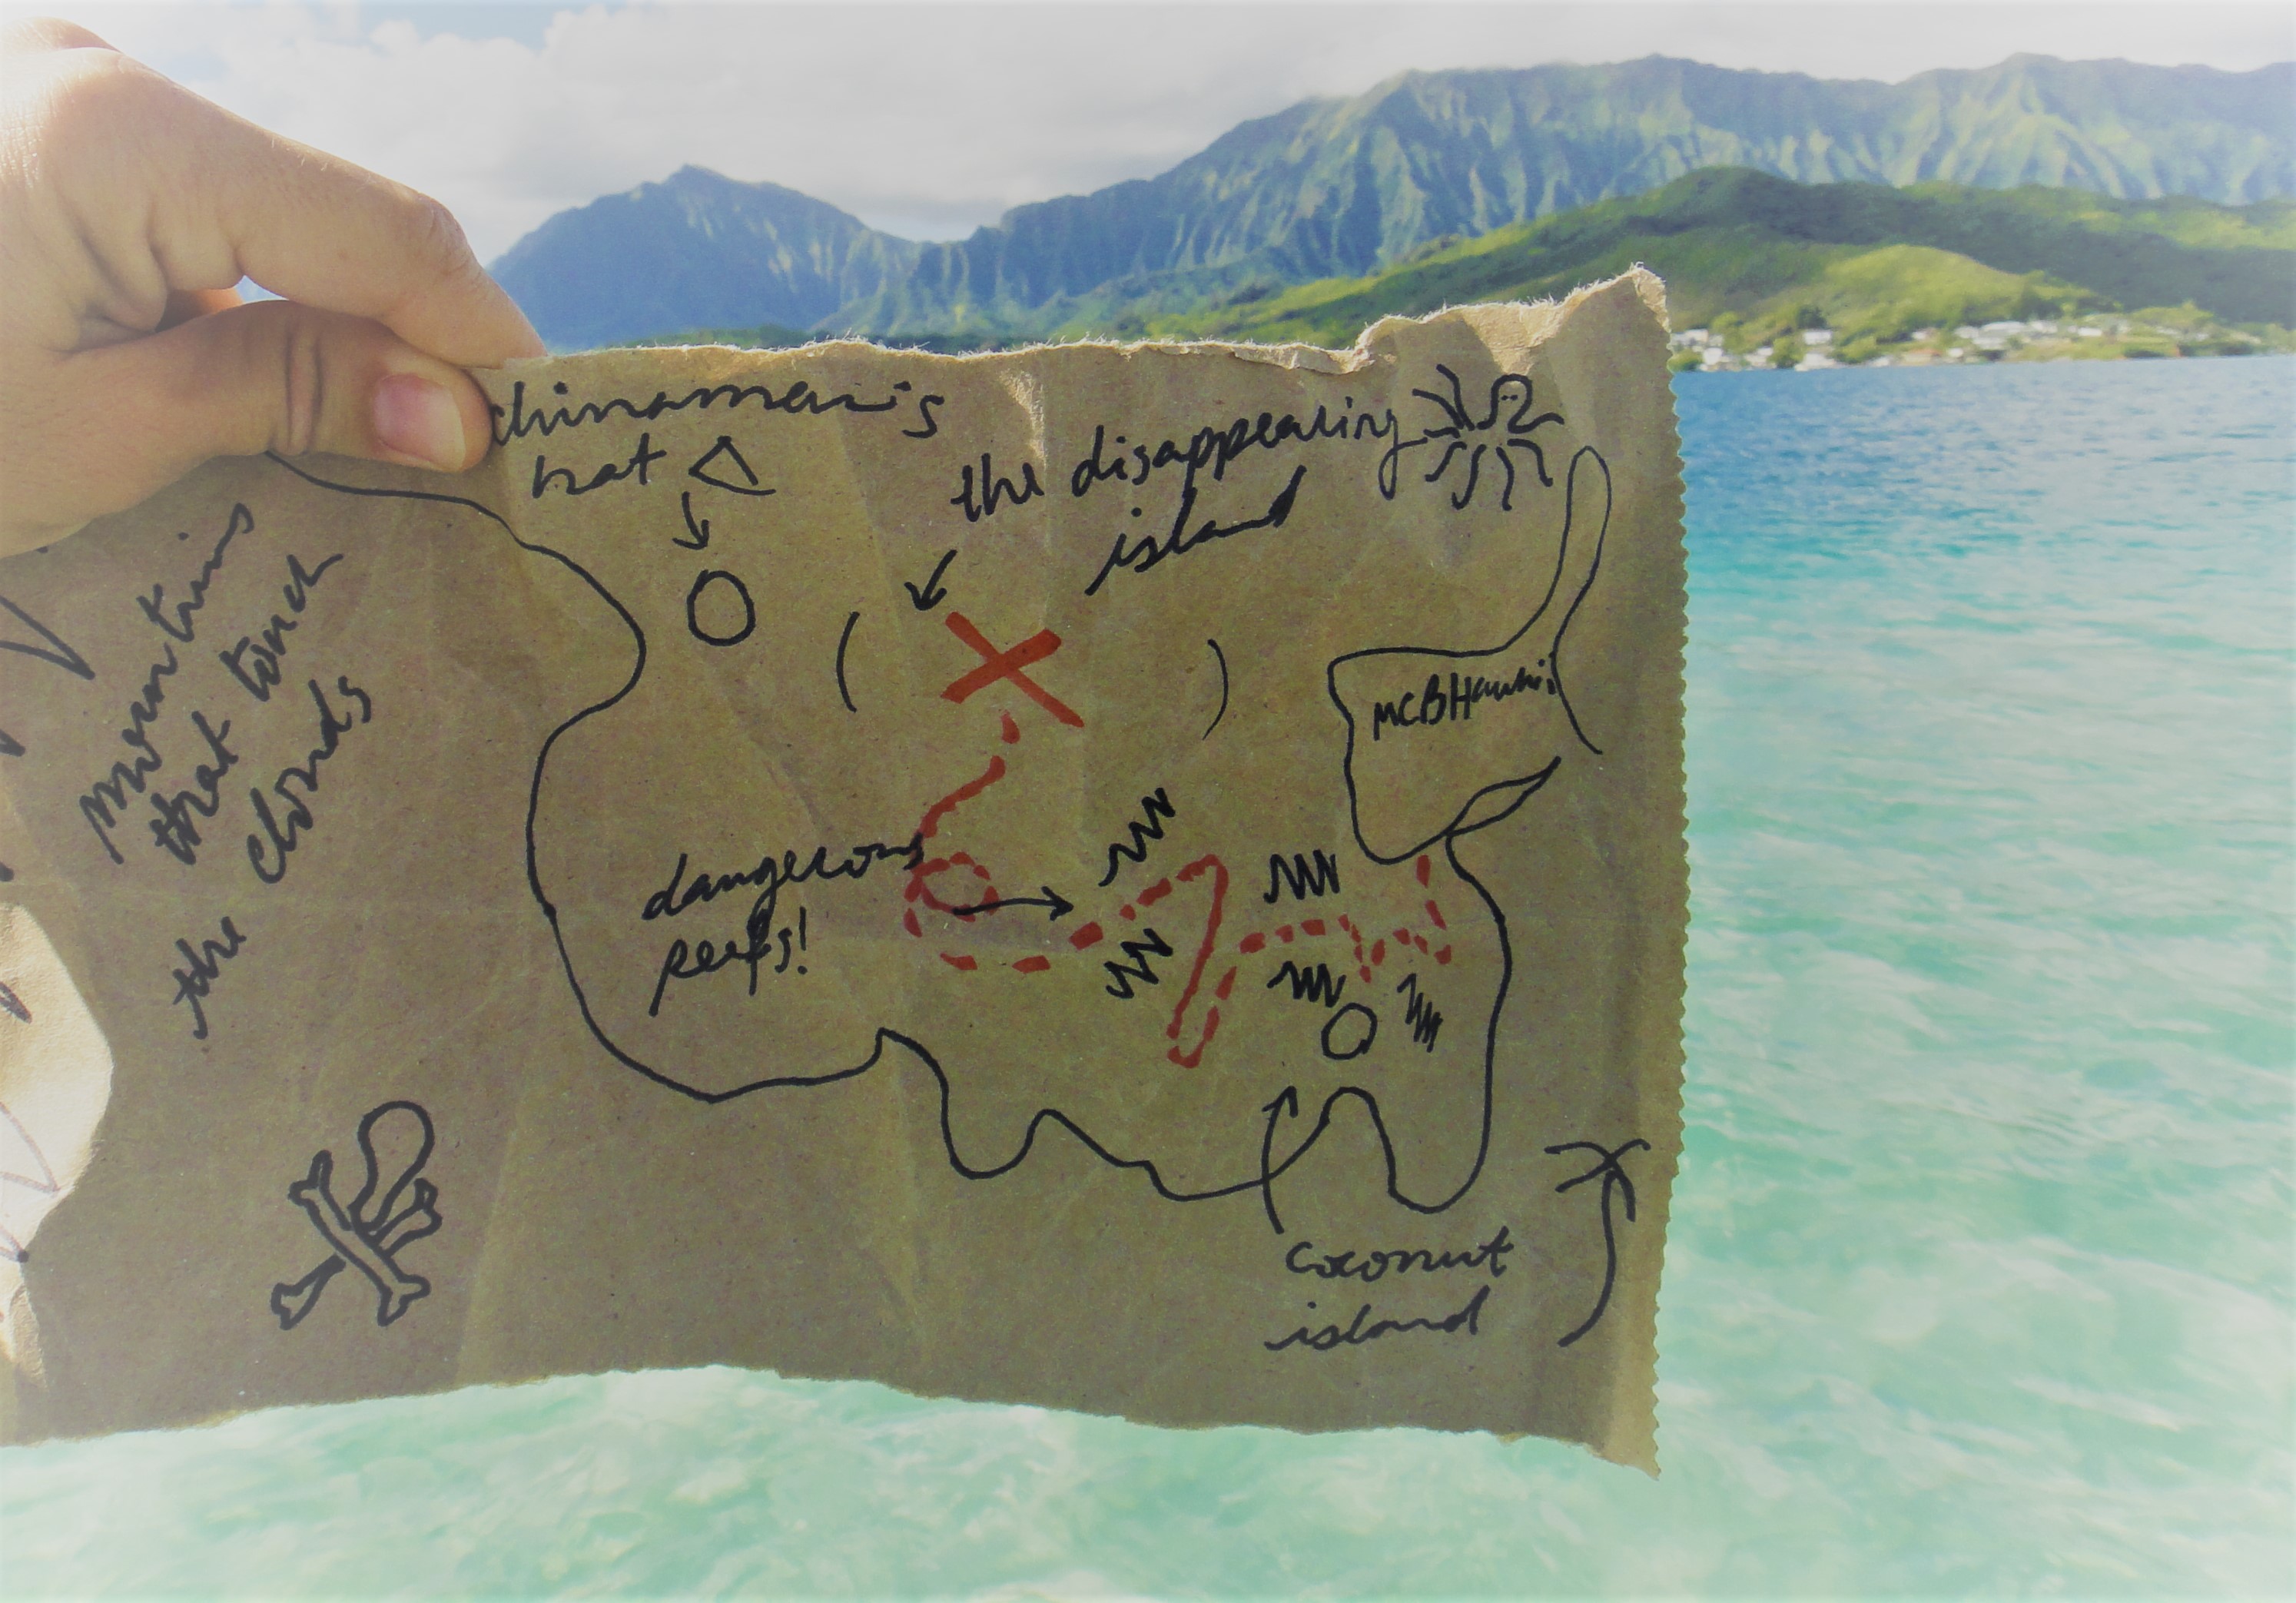 chinamen's
hat
the disappearing
island
mountins
that touch
the clouds
MCBHawaii
dangerous
reefs!
coconut
island